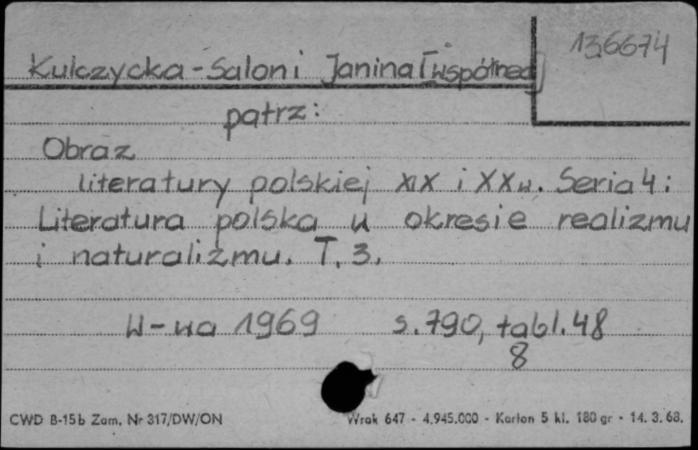 136674
Kulczycka-Saloni Janina [współred]
patrz:
Obraz
literatury polskiej XIX i XX w. Seria 4:
Literatura polska w okresie realizmu
i naturalizmu. T. 3.
W-wa 1969 s. 790, tabl. 48
8
CWD B-15b Zam. Nr 317/DW/ON Wrak 647 - 4.945.000 - Karton 5 kl. 180 gr - 14. 3. 68.